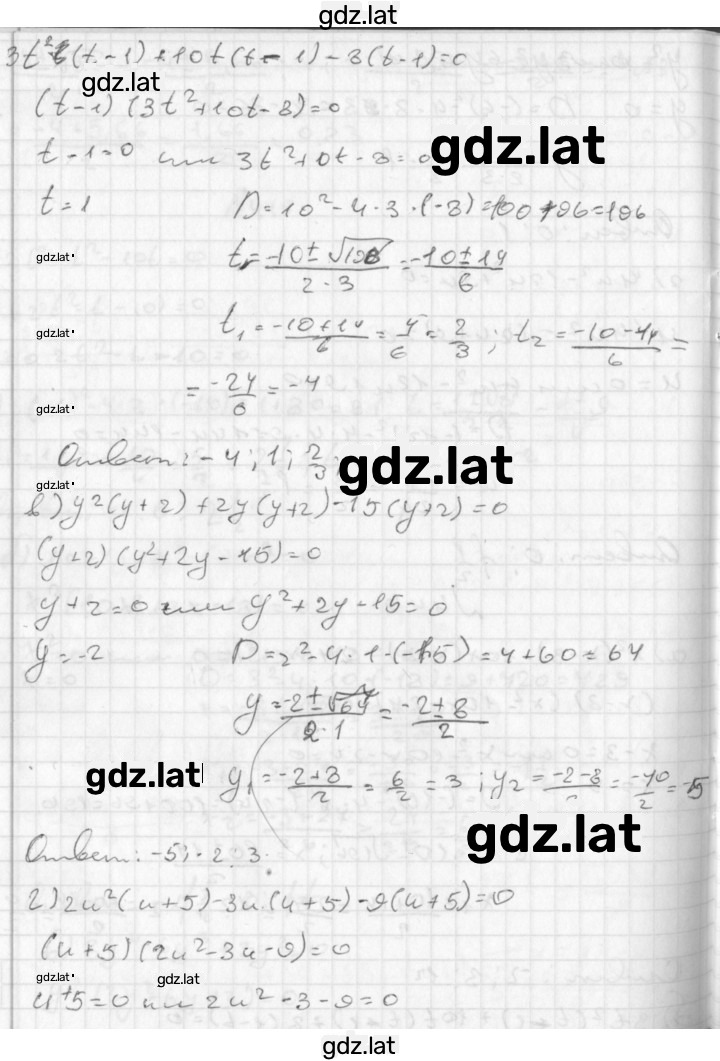 gdz.lat
3t²(t-1)+10t(t-1)-8(t-1)=0
gdz.lat
(t-1)(3t²+10t-8)=0
gdz.lat
t-1=0 или 3t²+10t-8=0
t=1 D=10²-4·3·(-8)=100+96=196
gdz.lat
t=(-10±√196)/(2·3)=(-10±14)/6
gdz.lat
t₁=(-10+14)/6=4/6=2/3; t₂=(-10-14)/6=
gdz.lat
=-24/6=-4
Ответ: -4; 1; 2/3;
gdz.lat
gdz.lat
в) y²(y+2)+2y(y+2)-15(y+2)=0
(y+2)(y²+2y-15)=0
y+2=0 или y²+2y-15=0
y=-2 D=2²-4·1·(-15)=4+60=64
y=(-2±√64)/(2·1)=(-2±8)/2
gdz.lat
y₁=(-2+8)/2=6/2=3; y₂=(-2-8)/2=-10/2=-5
gdz.lat
Ответ: -5; -2; 3.
г) 2u²(u+5)-3u(u+5)-9(u+5)=0
(u+5)(2u²-3u-9)=0
gdz.lat
gdz.lat
u+5=0 или 2u²-3-9=0
gdz.lat